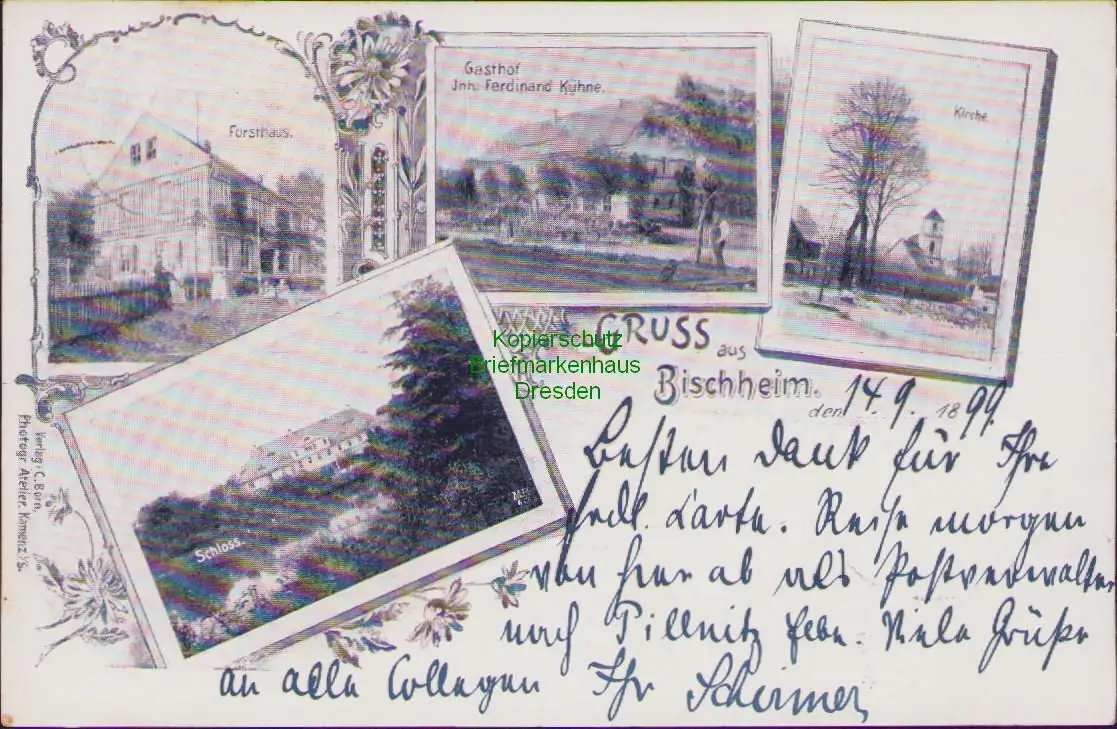 Forsthaus.
Gasthof
Jnh. Ferdinand Kühne.
Kirche.
Schloss.
Gruss aus
Bischheim.
den 14. 9. 1899.
Kopierschutz
Briefmarkenhaus
Dresden
Verlag: C. Born,
Photogr. Atelier, Kamenz i/S.
Besten Dank für Ihre
frdl. Carte. Reise morgen
von hier ab als Postverwalter
nach Pillnitz Elbe. Viele Grüße
an alle Collegen Ihr Schirmer